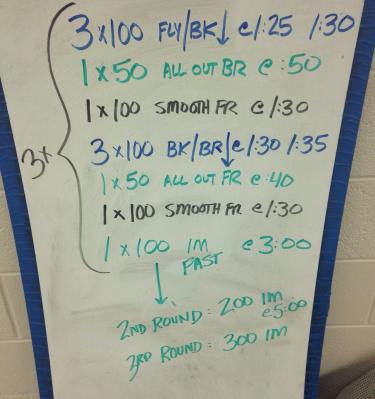 3x
3x100 FLY/BK↓ @1:25 1:30
1x50 ALL OUT BR @:50
1x100 SMOOTH FR @1:30
3x100 BK/BR↓@1:30 1:35
1x50 ALL OUT FR @:40
1x100 SMOOTH FR @1:30
1x100 IM FAST @3:00
2ND ROUND: 200 IM @5:00
3RD ROUND: 300 IM